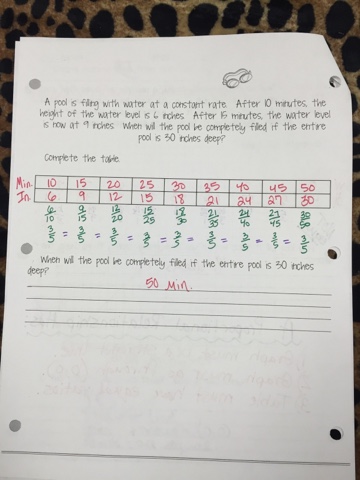 A pool is filling with water at a constant rate. After 10 minutes, the
height of the water level is 6 inches. After 15 minutes, the water level
is now at 9 inches. When will the pool be completely filled if the entire
pool is 30 inches deep?
Complete the table.
Min. 10 15 20 25 30 35 40 45 50
In. 6 9 12 15 18 21 24 27 30
6/10 9/15 12/20 15/25 18/30 21/35 24/40 27/45 30/50
3/5 = 3/5 = 3/5 = 3/5 = 3/5 = 3/5 = 3/5 = 3/5 = 3/5
When will the pool be completely filled if the entire pool is 30 inches
deep?
50 Min.